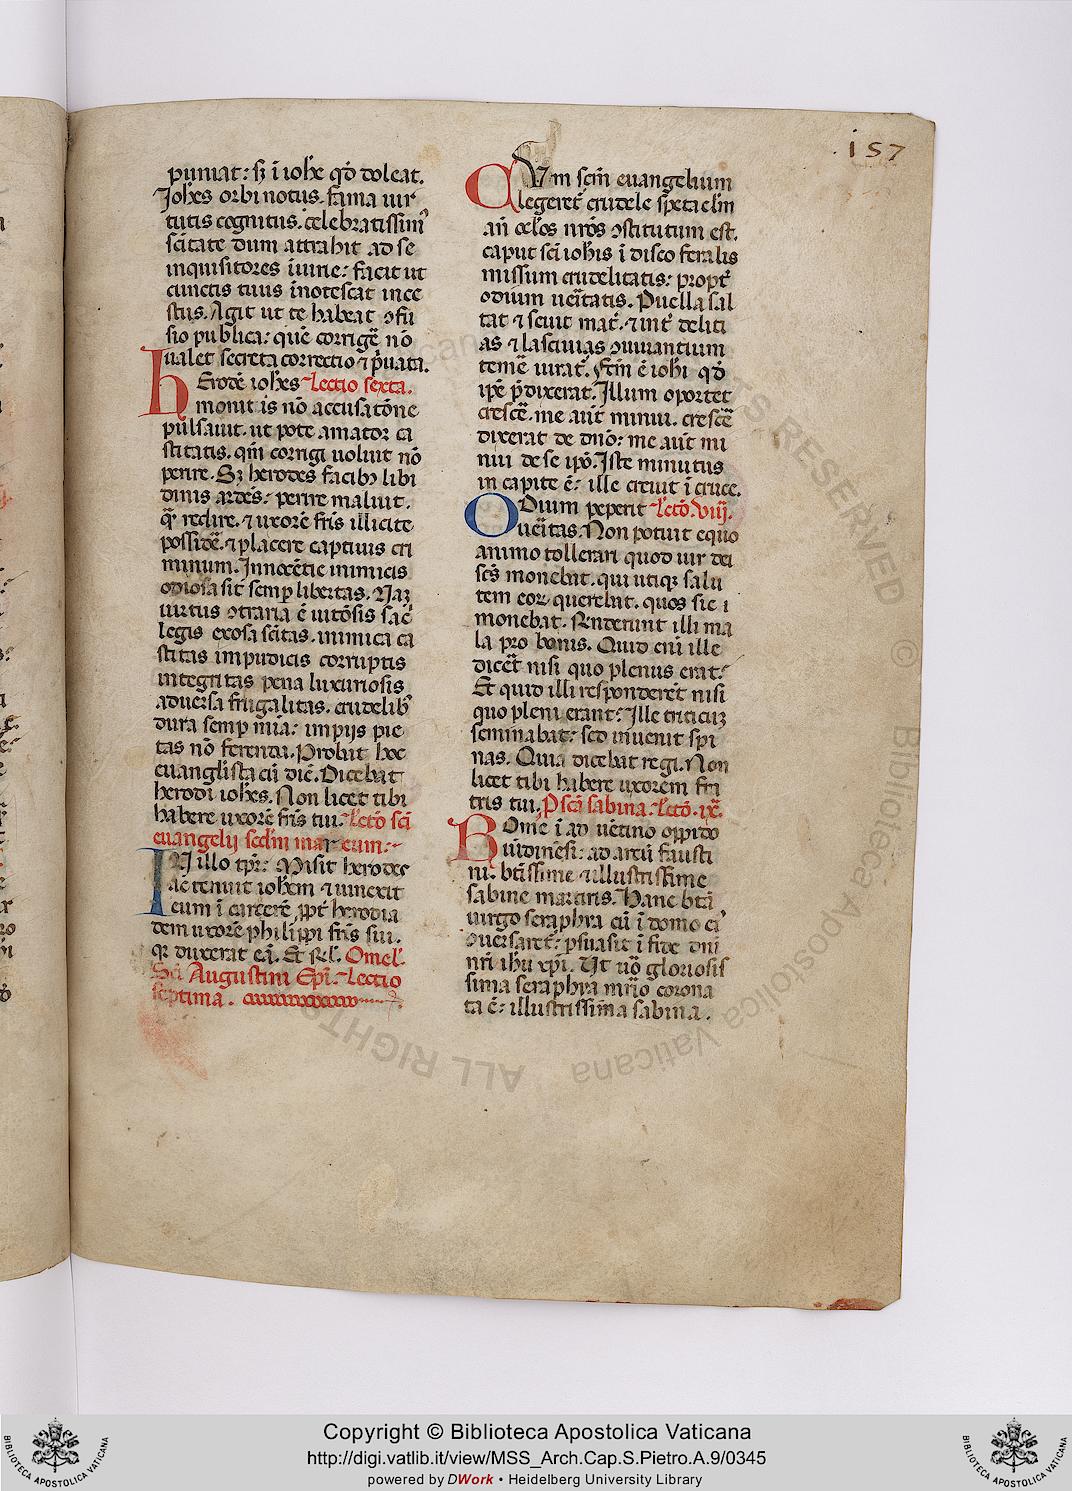 i57
puniat: sꝫ ī ioħe qđ doleat.
Joħes orbi notus. fama uir
tutis cognitus. celebratissim᾽
sc̄itate dum attrahit ad se
inquisitores iniurie: facit ut
cunctis tuus īnotescat ince
stus. Agit ut te habeat ↄfu
sio publica: quē corrigē nō
ualet secreta correctio ⁊ p̄uata.
Herodē ioħes Lectio sexta.
monit is nō accusatōne
pulsauit. ut pote amator ca
stitatis. qm̄ corrigi uoluit nō
perire. Sꝫ herodes facibꝫ libi
dinis ardēs: perire maluit.
q̄ redire. ⁊ uxorē fr̄is illicite
possidē. ⁊ placere captiuis cri
minum. Innocētie inimicis
odiosa sit semp libertas. Naꝫ
uirtus ↄtraria ē uitōsis sac̄
legis exosa sc̄itas. inimica ca
stitas impudicis corruptis
integritas pena luxuriosis
aduersa frugalitas. crudelib᾽
dura semp mīa: impijs pie
tas nō ferenda. Probat hoc
euangl̄ista cū dic̄. Dicebat
herodi ioħes. Non licet tibi
habere uxorē fr̄is tui. Lectō sc̄i
euangelij scd̄m marcum:
IN illo tp̄r: Misit herodes
ac tenuit ioħem ⁊ uinexit
eum ī carcerē ꝓpt̄ herodia
dem uxorē philippi fr̄is sui.
qꝛ duxerat eā. Et rl̄. Omel̄.
Sc̄i Augustini Ep̄i. Lectio
septima.
CUm sc̄m euangelium
legeret̄ crudele spectacl̄m
an̄ ocl̄os nr̄os ↄstitutum est.
caput sc̄i ioħis ī disco feralis
missum crudelitatis: propt̄
odium uēritatis. Puella sal
tat ⁊ seuit mat̄. ⁊ int̄ deliti
as ⁊ lasciuias ↄuiuantium
temē iurat̄. Fc̄m ē ioħi qđ
ip̄e p̄dixerat. Illum oportet
crescē. me aūt minui. crescē
dixerat de dn̄o: me aūt mi
nui de se ip̄o. Iste minutus
in capite ē: ille creuit ī cruce.
ODium peperit Lectō. viij.
uēritas. Non potuit equo
animo tollerari quod uir dei
sc̄s monebat. qui utiqꝫ salu
tem eoꝝ querebat. quos sic i
monebat. Renderunt illi ma
la pro bonis. Quid eni ille
dicēt nisi quo plenus erat:
Et quid illi responderet nisi
quo pleni erant: Ille triticuꝫ
seminabat: sed inuenit spi
nas. Quia dicebat regi. Non
licet tibi habere uxorem fra
tris tui. P sc̄a sabina. Lectō. ix̄.
ROme ī ad uētino oppido
uidinēsi: ad arcū fausti
ni. btīssime ⁊ illustrissime
sabine martiris. Hanc btā
uirgo seraphia cū ī domo ei᾽
ↄuersaret̄: psuasit ī fide dn̄i
nr̄i ihū xp̄i. Ut uō gloriosis
sima seraphia mr̄io corona
ta ē: illustrissima sabina.
Copyright © Biblioteca Apostolica Vaticana
http://digi.vatlib.it/view/MSS_Arch.Cap.S.Pietro.A.9/0345
powered by DWork • Heidelberg University Library
BIBLIOTECA APOSTOLICA VATICANA
BIBLIOTECA APOSTOLICA VATICANA
© Biblioteca Apostolica Vaticana ALL RIGHTS RESERVED